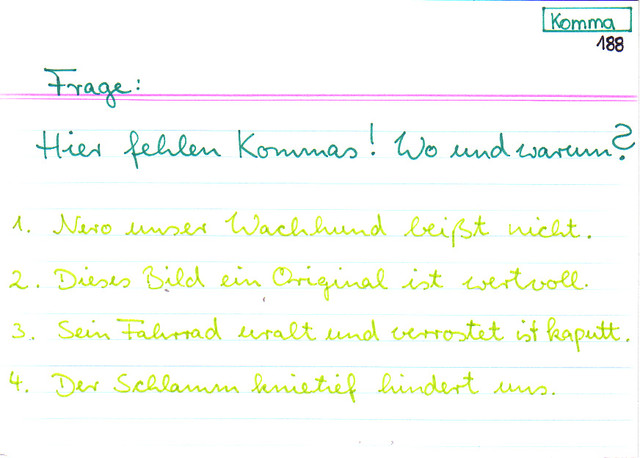 Komma
188
Frage:
Hier fehlen Kommas! Wo und warum?
1. Nero unser Wachhund beißt nicht.
2. Dieses Bild ein Original ist wertvoll.
3. Sein Fahrrad uralt und verrostet ist kaputt.
4. Der Schlamm knietief hindert uns.